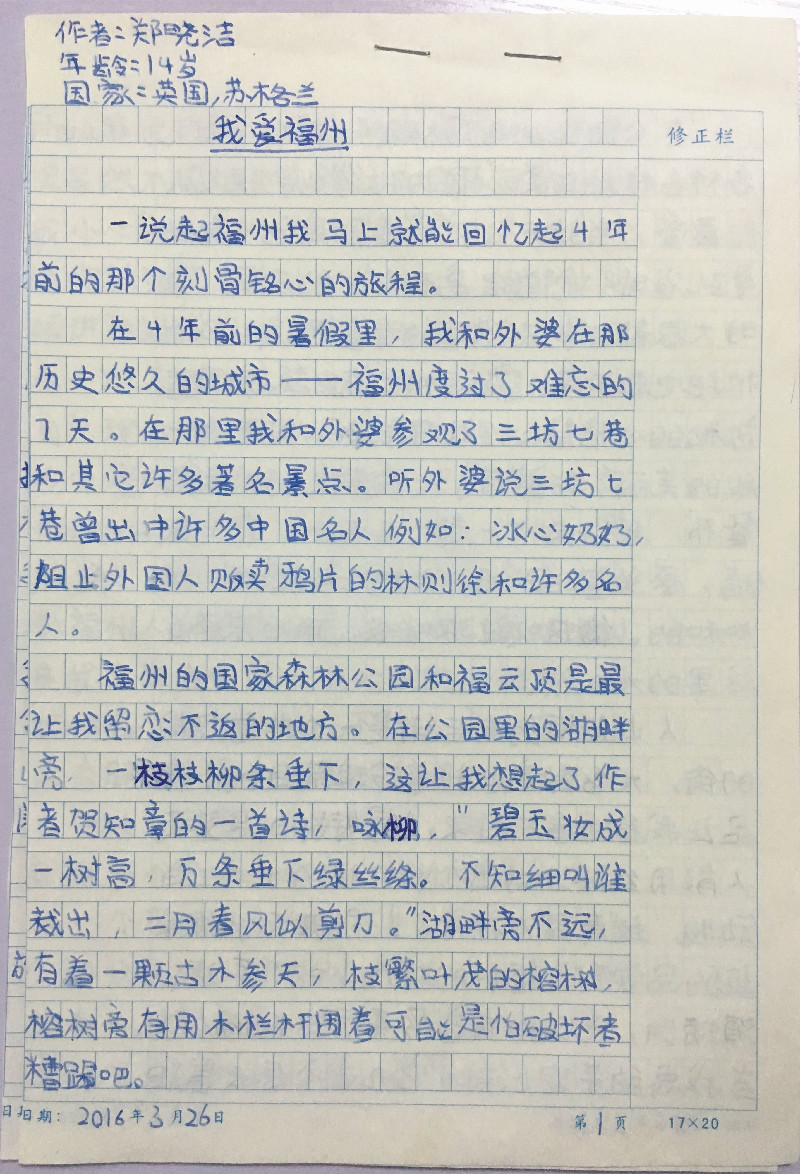 作者:郑晓洁
年龄:14岁
国家:英国,苏格兰
我爱福州
修正栏
一说起福州我马上就能回忆起4年
前的那个刻骨铭心的旅程。
在4年前的暑假里,我和外婆在那
历史悠久的城市——福州度过了难忘的
7天。在那里我和外婆参观了三坊七巷
和其它许多著名景点。听外婆说三坊七
巷曾出中许多中国名人例如:冰心奶奶,
阻止外国人贩卖鸦片的林则徐和许多名
人。
福州的国家森林公园和福云顶是最
让我留恋不返的地方。在公园里的湖畔
旁,一枝枝柳条垂下,这让我想起了作
者贺知章的一首诗,咏柳,"碧玉妆成
一树高,万条垂下绿丝绦。不知细叫谁
裁出,二月春风似剪刀。"湖畔旁不远,
有着一颗古木参天,枝繁叶茂的榕树,
榕树旁有用木栏杆围着可能是怕破坏者
糟蹋吧。
日期:2016年3月26日
第1页 17×20